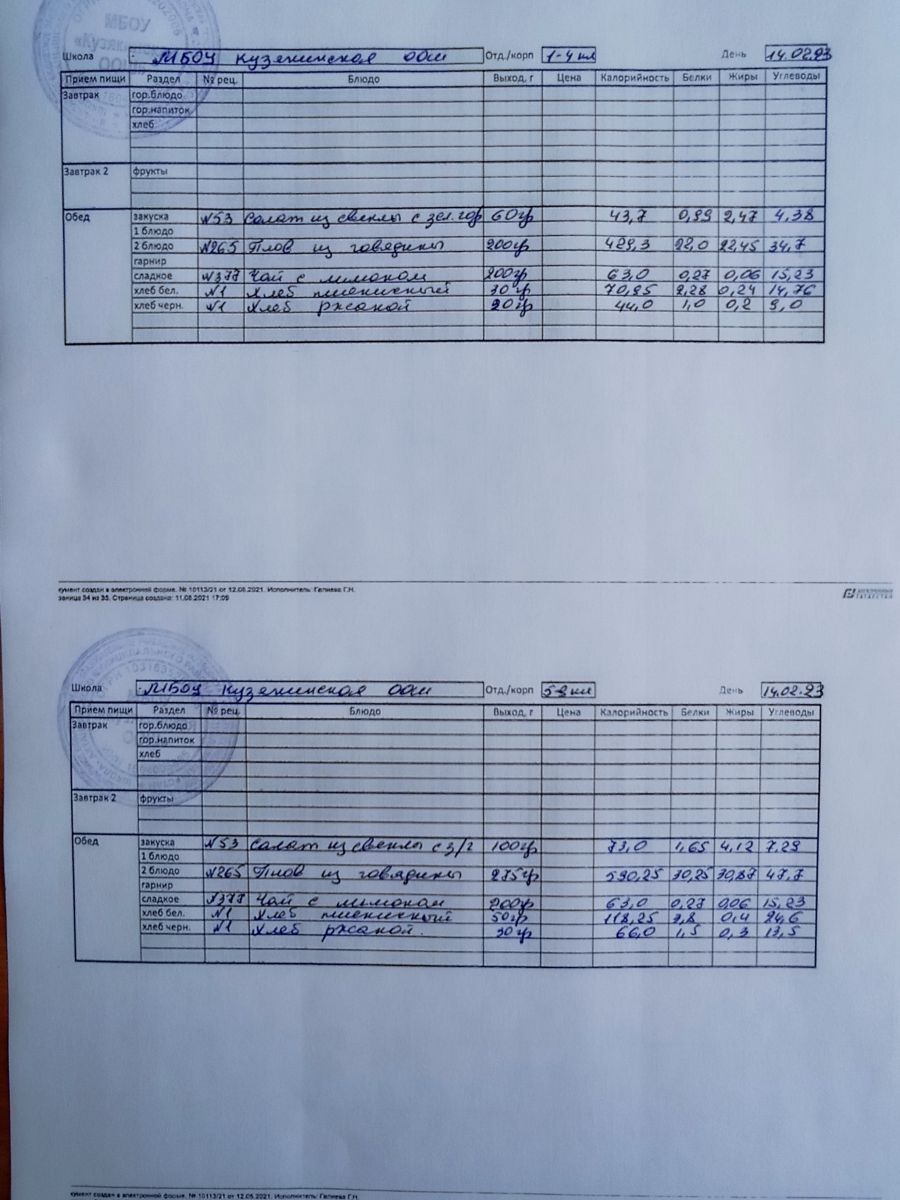 МБОУ
Школа МБОУ Кузякинская ООШ Отд./корп 1-4 кл День 14.02.23
Прием пищи Раздел № рец. Блюдо Выход, г Цена Калорийность Белки Жиры Углеводы
Завтрак гор.блюдо
гор.напиток
хлеб
Завтрак 2 фрукты
Обед закуска №53 Салат из свеклы с зел.гор 60гр 43,7 0,99 2,47 4,38
1 блюдо
2 блюдо №265 Плов из говядины 200гр 429,3 22,0 22,45 34,7
гарнир
сладкое №377 Чай с лимоном 200гр 63,0 0,27 0,06 15,23
хлеб бел. №1 Хлеб пшеничный 30гр 70,95 2,28 0,24 14,76
хлеб черн. №1 Хлеб ржаной 20гр 44,0 1,0 0,2 9,0
кумент создан в электронной форме. № 10113/21 от 12.08.2021. Исполнитель: Галиева Г.Н.
раница 34 из 35. Страница создана: 11.08.2021 17:09
Школа МБОУ Кузякинская ООШ Отд./корп 5-9 кл День 14.02.23
Прием пищи Раздел № рец. Блюдо Выход, г Цена Калорийность Белки Жиры Углеводы
Завтрак гор.блюдо
гор.напиток
хлеб
Завтрак 2 фрукты
Обед закуска №53 Салат из свеклы с з/г 100гр 73,0 1,65 4,12 7,29
1 блюдо
2 блюдо №265 Плов из говядины 275гр 590,25 30,25 30,87 47,7
гарнир
сладкое №377 Чай с лимоном 200гр 63,0 0,27 0,06 15,23
хлеб бел. №1 Хлеб пшеничный 50гр 118,25 3,8 0,4 24,6
хлеб черн. №1 Хлеб ржаной. 30гр 66,0 1,5 0,3 13,5
кумент создан в электронной форме. № 10113/21 от 12.08.2021. Исполнитель: Галиева Г.Н.